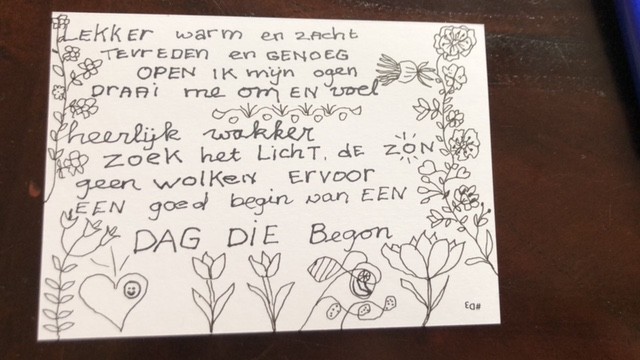 LEKKER warm en zacht
TEVREDEN en GENOEG
OPEN IK mijn ogen
DRAAI me om EN voel
heerlijk wakker
ZOEK het LICHT, de ZON
geen wolken ERVOOR
EEN goed begin van EEN
DAG DIE Begon
#D3